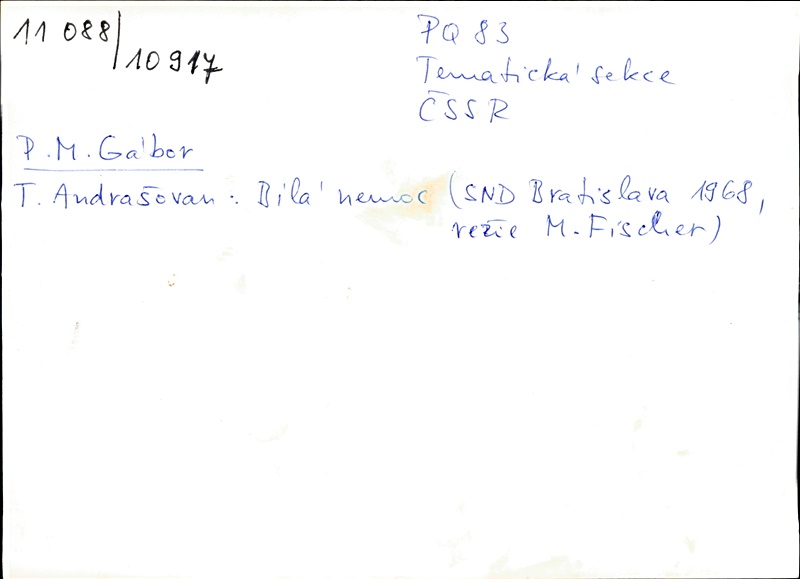 11 088/10 917
PQ 83
Tematická sekce
ČSSR
P. M. Gábor
T. Andrašovan: Bílá nemoc (SND Bratislava 1968,
režie M. Fischer)